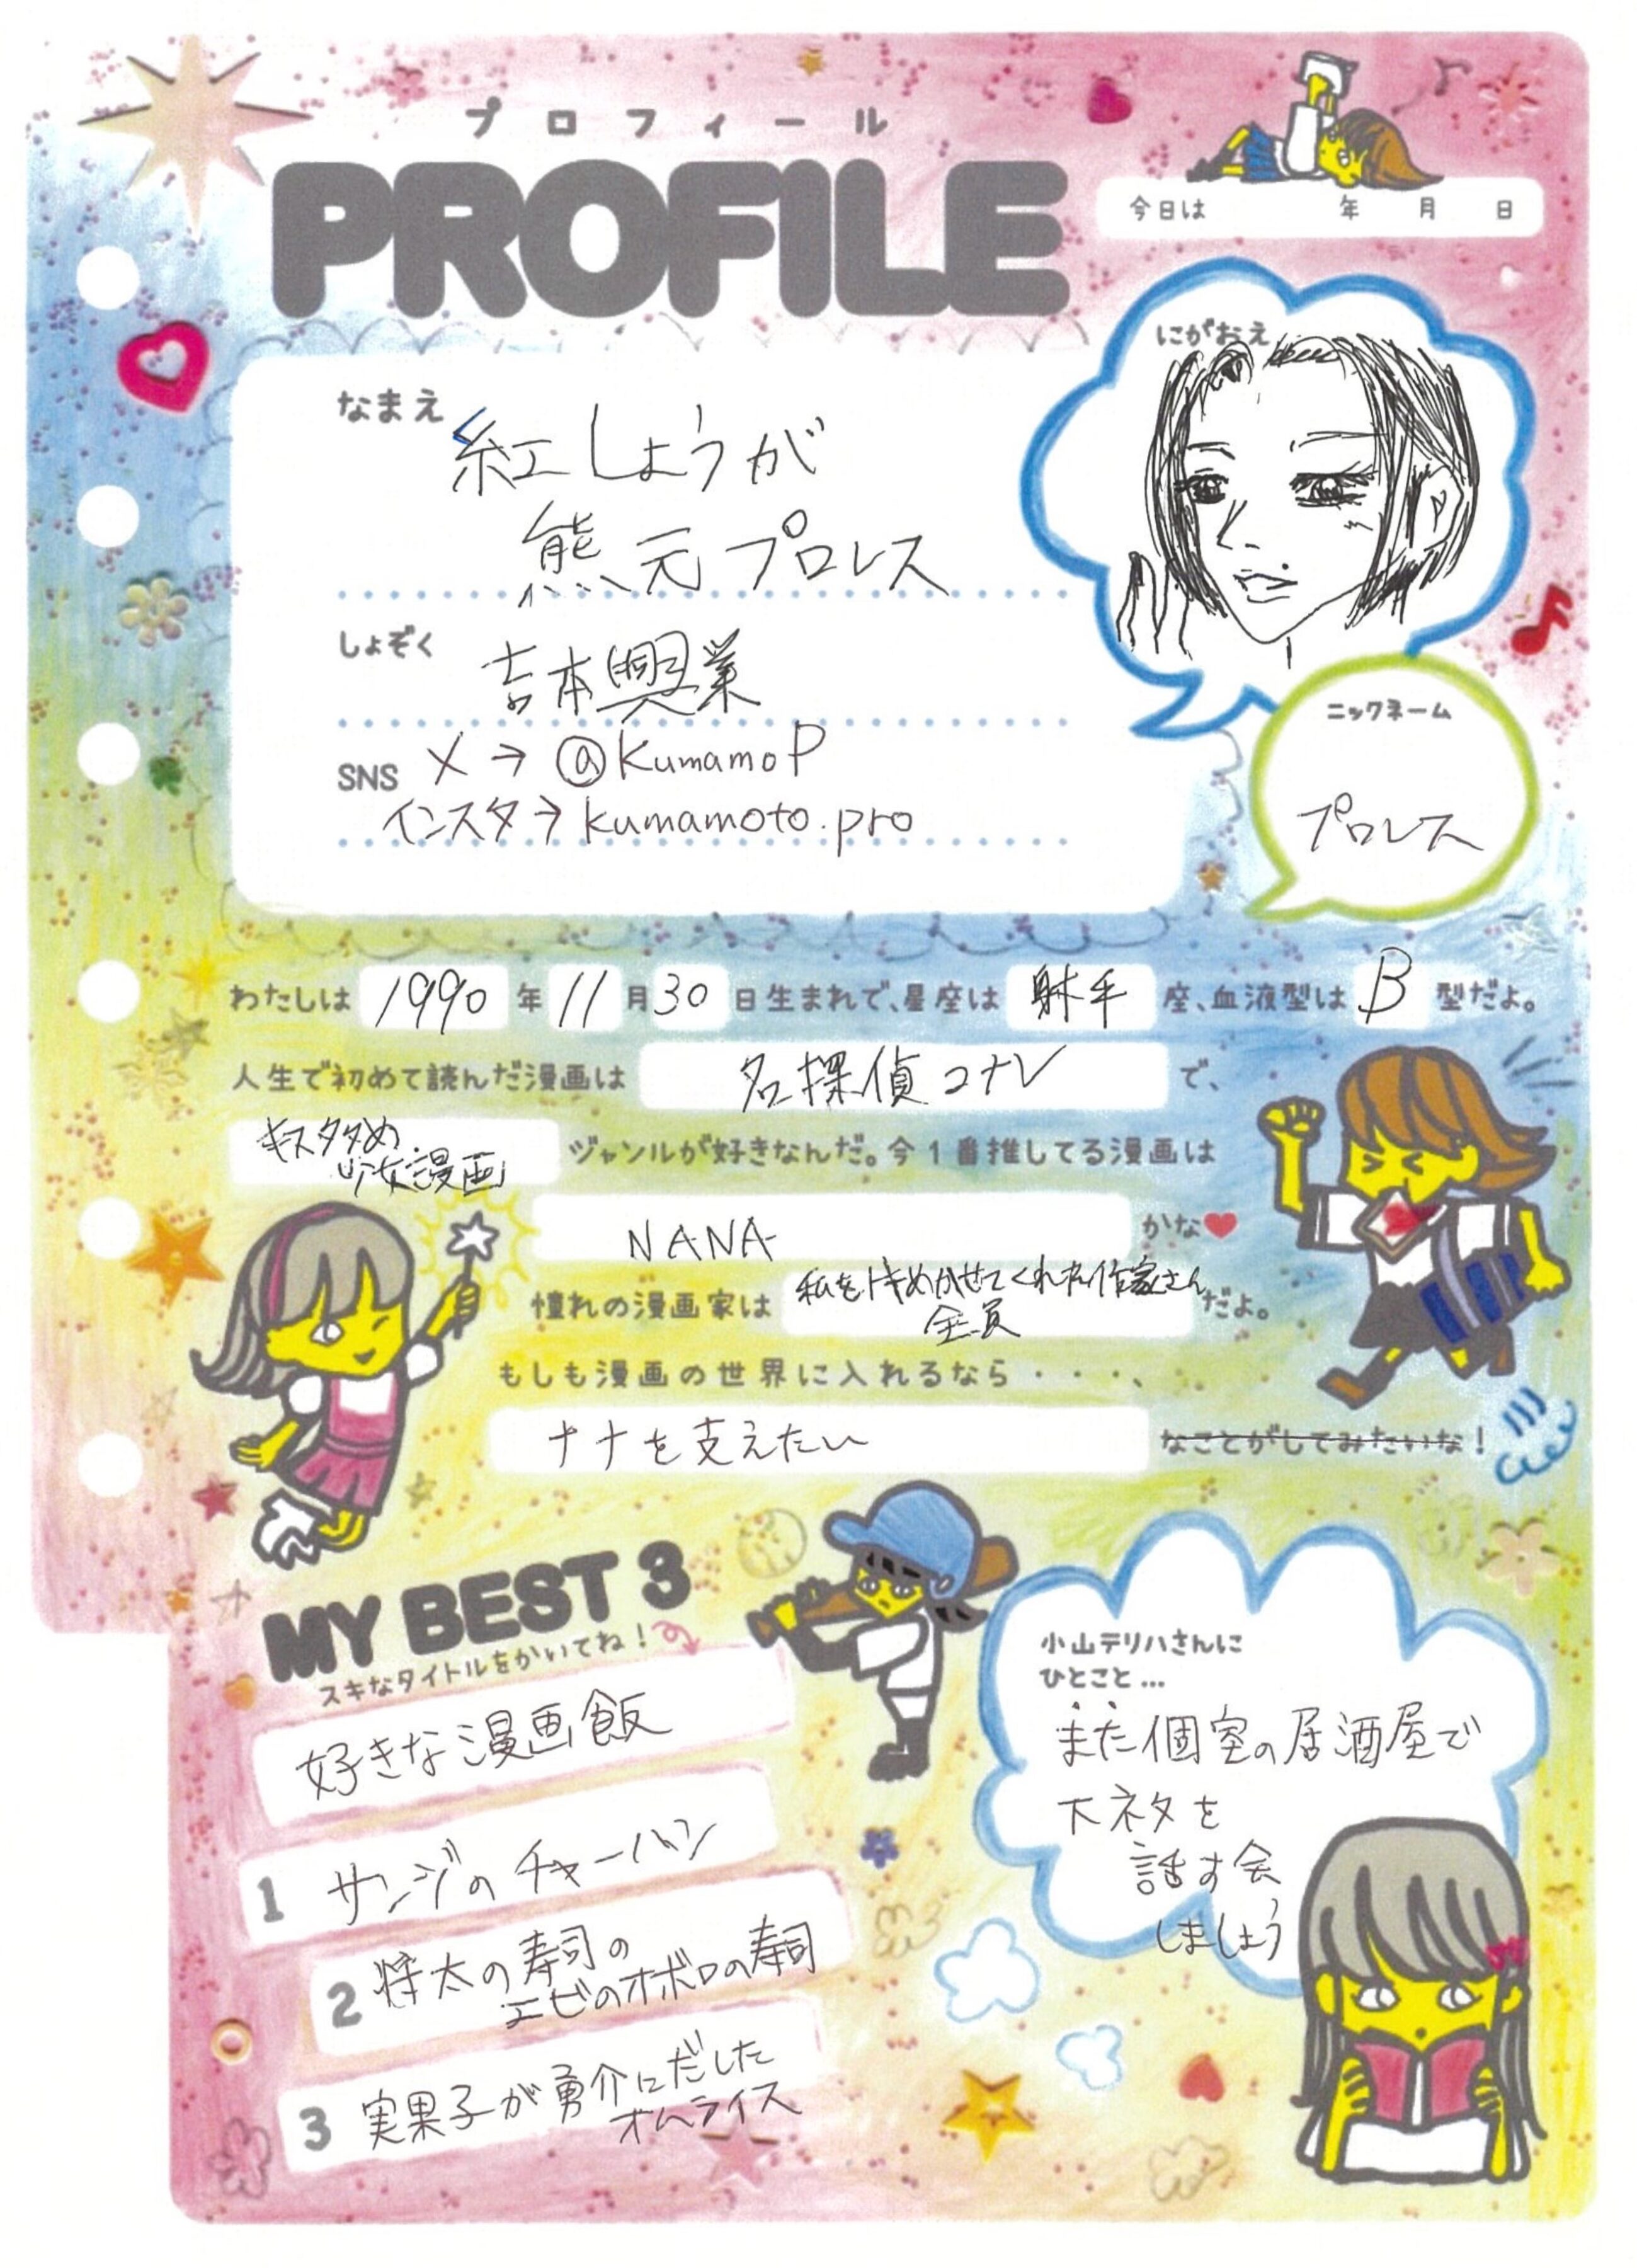 プロフィール
PROFILE
今日は 年 月 日
にがおえ
なまえ
紅しょうが
熊元プロレス
しょぞく 吉本興業
SNS X→@KumamoP
インスタ→kumamoto.pro
ニックネーム
プロレス
わたしは 1990 年 11 月 30 日生まれで、星座は 射手 座、血液型は B 型だよ。
人生で初めて読んだ漫画は 名探偵コナン で、
キスタタめ
少女漫画 ジャンルが好きなんだ。今1番推してる漫画は
NANA かな♥
憧れの漫画家は 私をトキめかせてくれた作家さん
全員 だよ。
もしも漫画の世界に入れるなら・・・、
ナナを支えたい なことがしてみたいな!
MY BEST 3
スキなタイトルをかいてね!
好きな漫画飯
1 サンジのチャーハン
2 将太の寿司の
エビのオボロの寿司
3 実果子が勇介にだした
オムライス
小山テリハさんに
ひとこと…
また個室の居酒屋で
下ネタを
話す会
しましょう